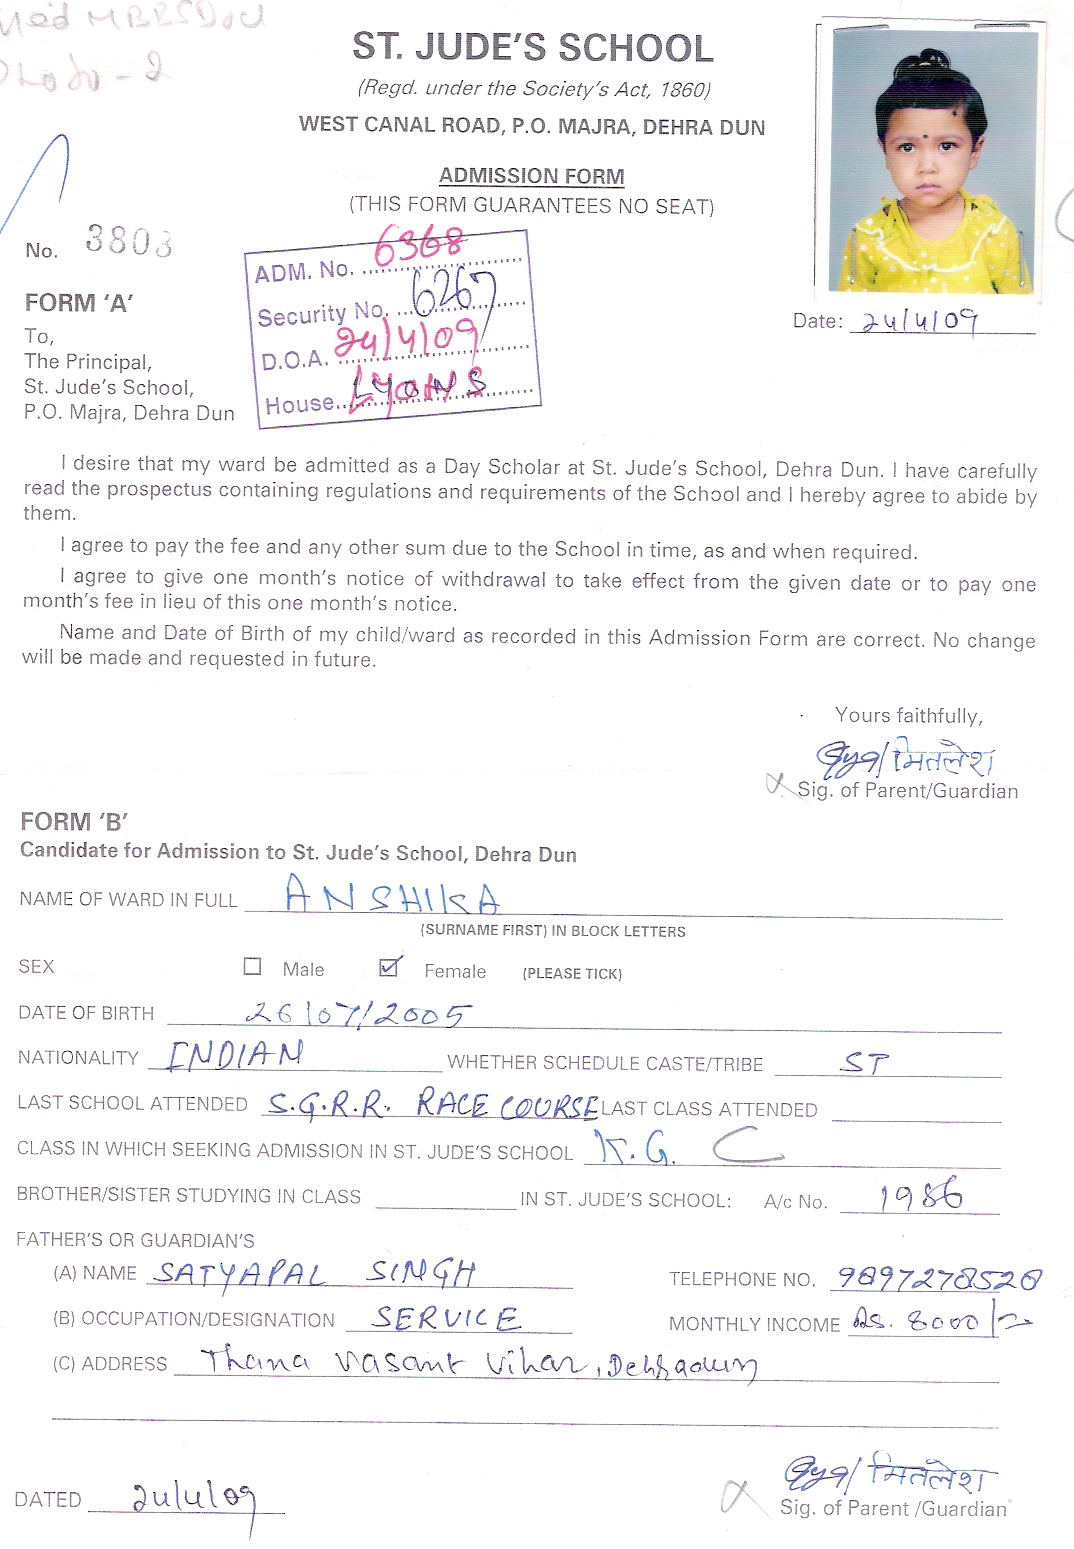 ST. JUDE'S SCHOOL
(Regd. under the Society's Act, 1860)
WEST CANAL ROAD, P.O. MAJRA, DEHRA DUN
ADMISSION FORM
(THIS FORM GUARANTEES NO SEAT)
No. 3803
ADM. No. 6368
Security No. 6267
D.O.A. 24/4/09
House LYONS
Date: 24/4/09
FORM 'A'
To,
The Principal,
St. Jude's School,
P.O. Majra, Dehra Dun
I desire that my ward be admitted as a Day Scholar at St. Jude's School, Dehra Dun. I have carefully
read the prospectus containing regulations and requirements of the School and I hereby agree to abide by
them.
I agree to pay the fee and any other sum due to the School in time, as and when required.
I agree to give one month's notice of withdrawal to take effect from the given date or to pay one
month's fee in lieu of this one month's notice.
Name and Date of Birth of my child/ward as recorded in this Admission Form are correct. No change
will be made and requested in future.
Yours faithfully,
मितलेश
Sig. of Parent/Guardian
FORM 'B'
Candidate for Admission to St. Jude's School, Dehra Dun
NAME OF WARD IN FULL ANSHIKA
(SURNAME FIRST) IN BLOCK LETTERS
SEX Male Female (PLEASE TICK)
DATE OF BIRTH 26/07/2005
NATIONALITY INDIAN WHETHER SCHEDULE CASTE/TRIBE ST
LAST SCHOOL ATTENDED S.G.R.R. RACE COURSE LAST CLASS ATTENDED
CLASS IN WHICH SEEKING ADMISSION IN ST. JUDE'S SCHOOL K.G. C
BROTHER/SISTER STUDYING IN CLASS IN ST. JUDE'S SCHOOL: A/c No. 1986
FATHER'S OR GUARDIAN'S
(A) NAME SATYAPAL SINGH TELEPHONE NO. 9897278520
(B) OCCUPATION/DESIGNATION SERVICE MONTHLY INCOME Rs. 8000/-
(C) ADDRESS Thana Vasant Vihar, Dehradun
मितलेश
DATED 24/4/09 Sig. of Parent/Guardian